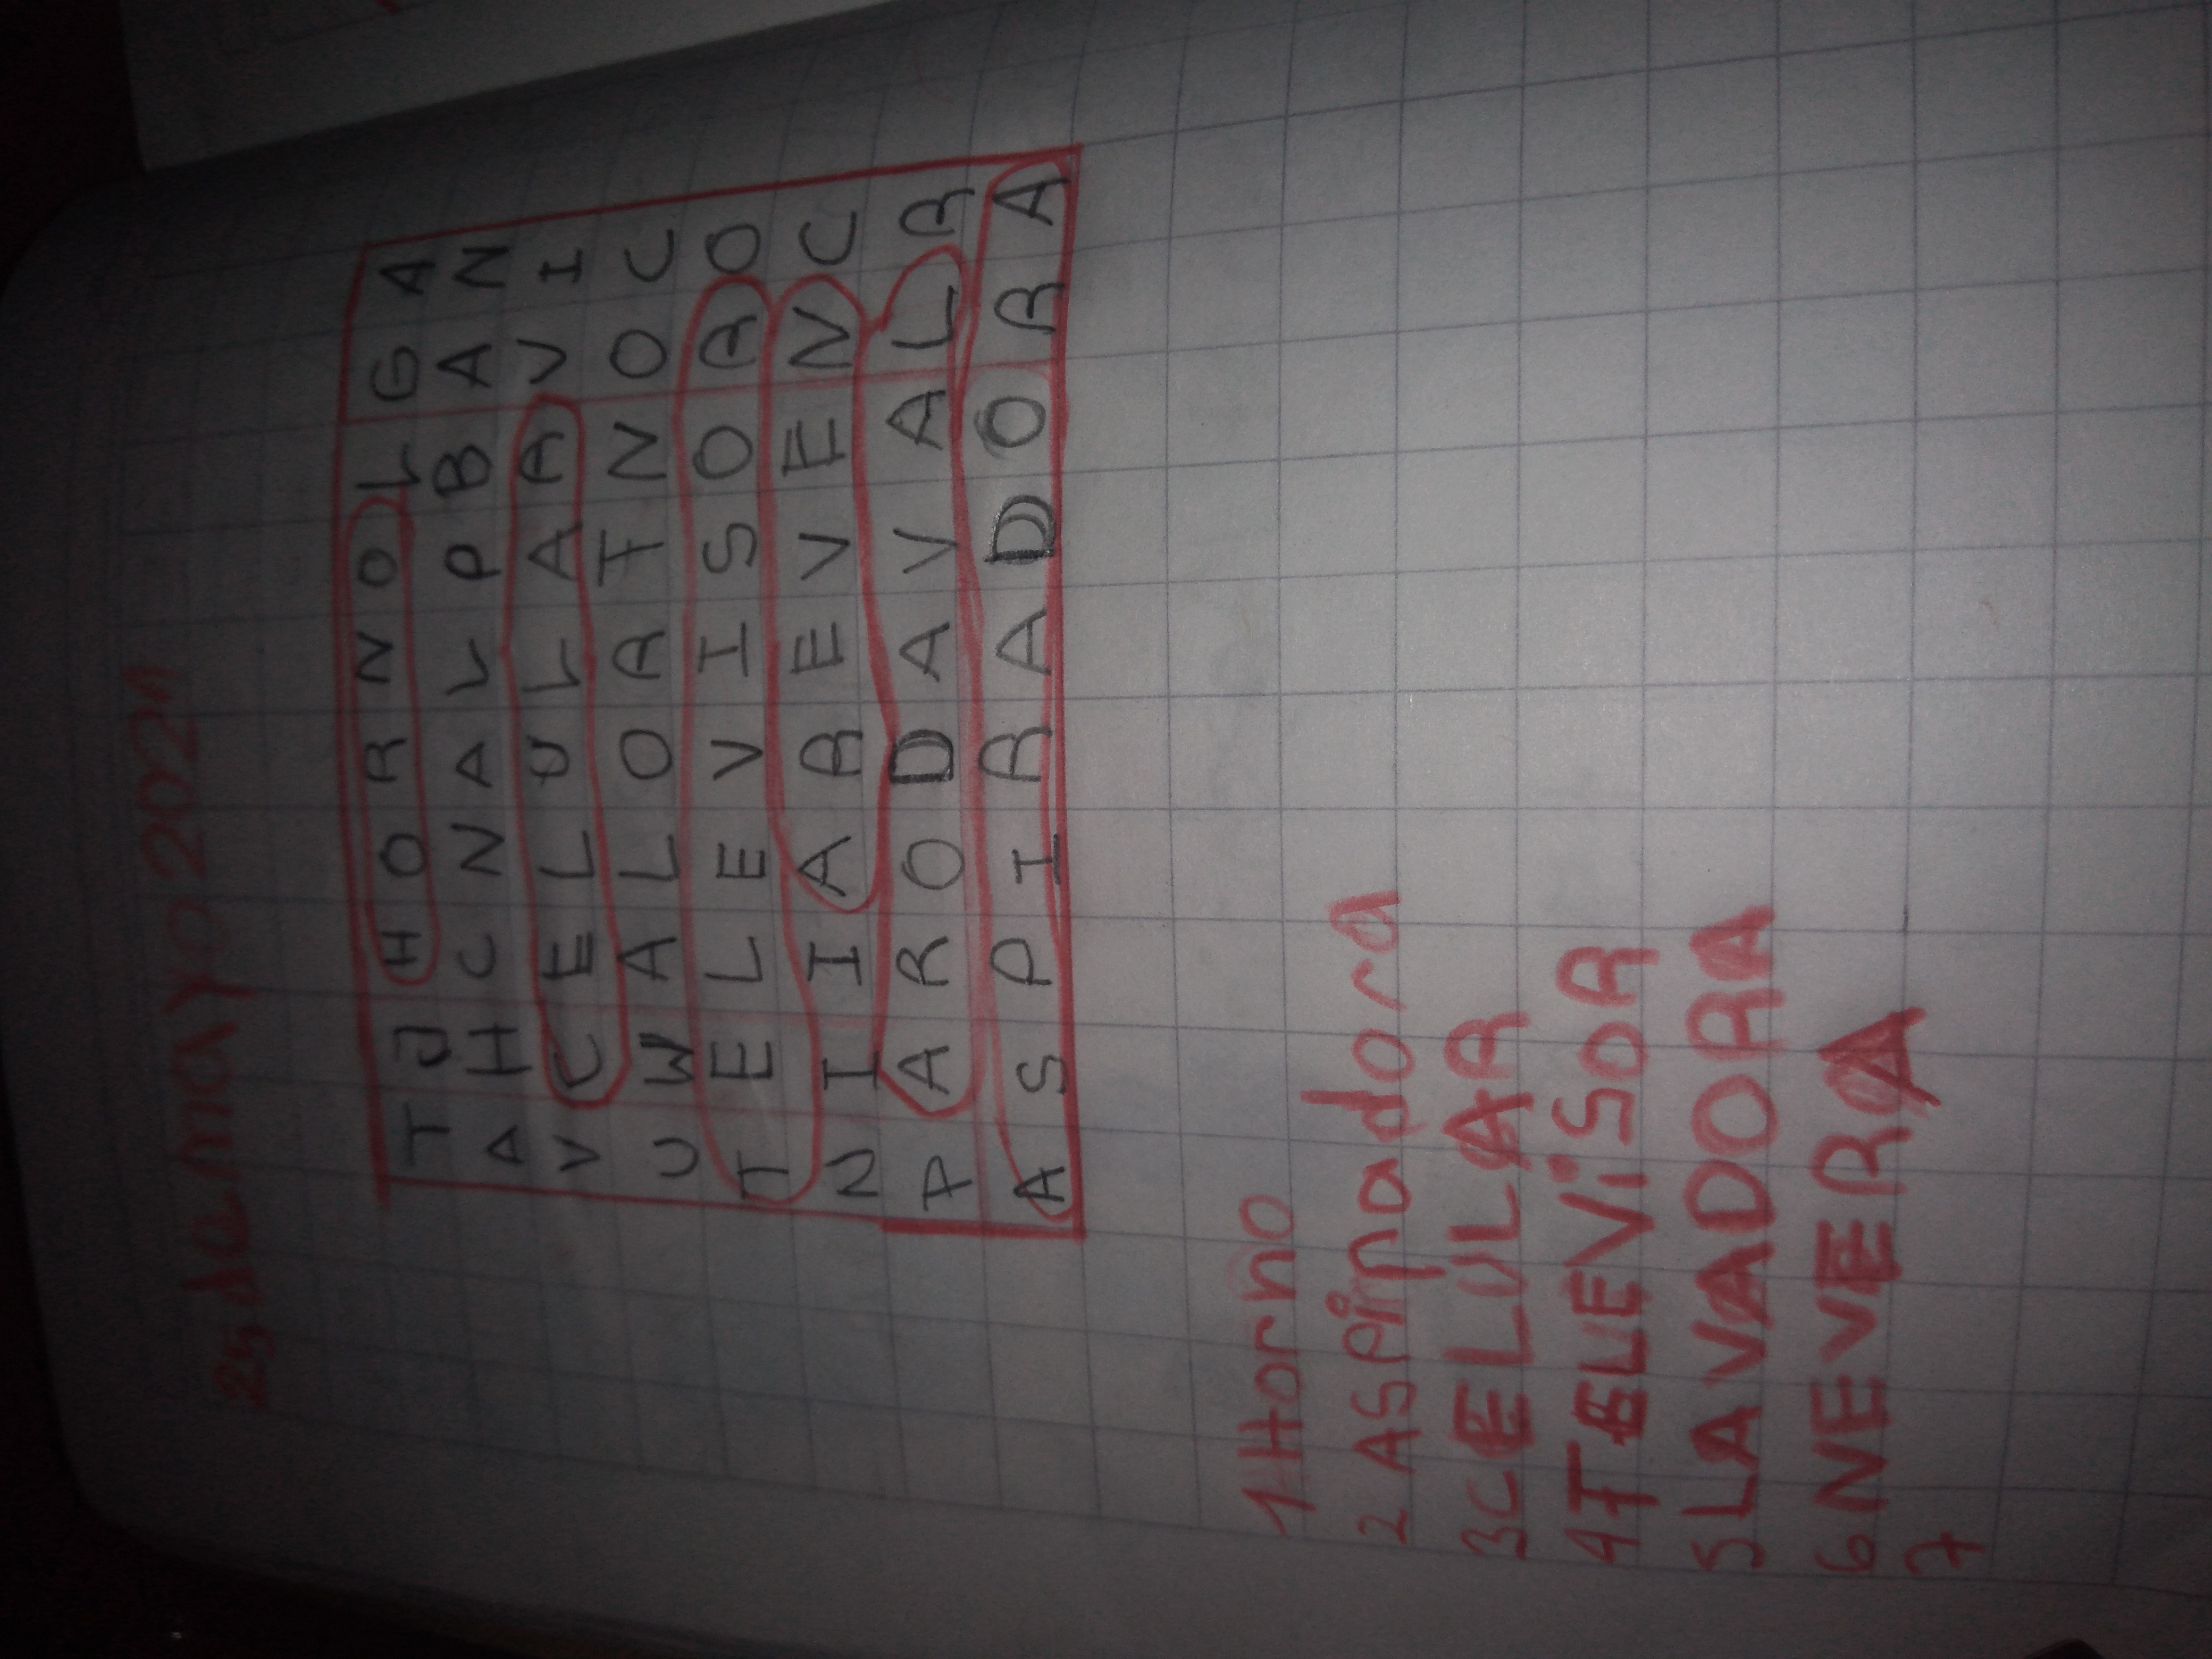 25 de mayo 2021
T J H O R N O L G A
A H C N A L P B A N
V C E L U L A R V I
U W A L O R T N O C
T E L E V I S O R O
N I I A R E V E N C
P A R O D A V A L R
A S P I R A D O R A
1 Horno
2 ASPiradora
3 CELULAR
4 TELEViSOR
5 LAVADORA
6 NEVERA
7